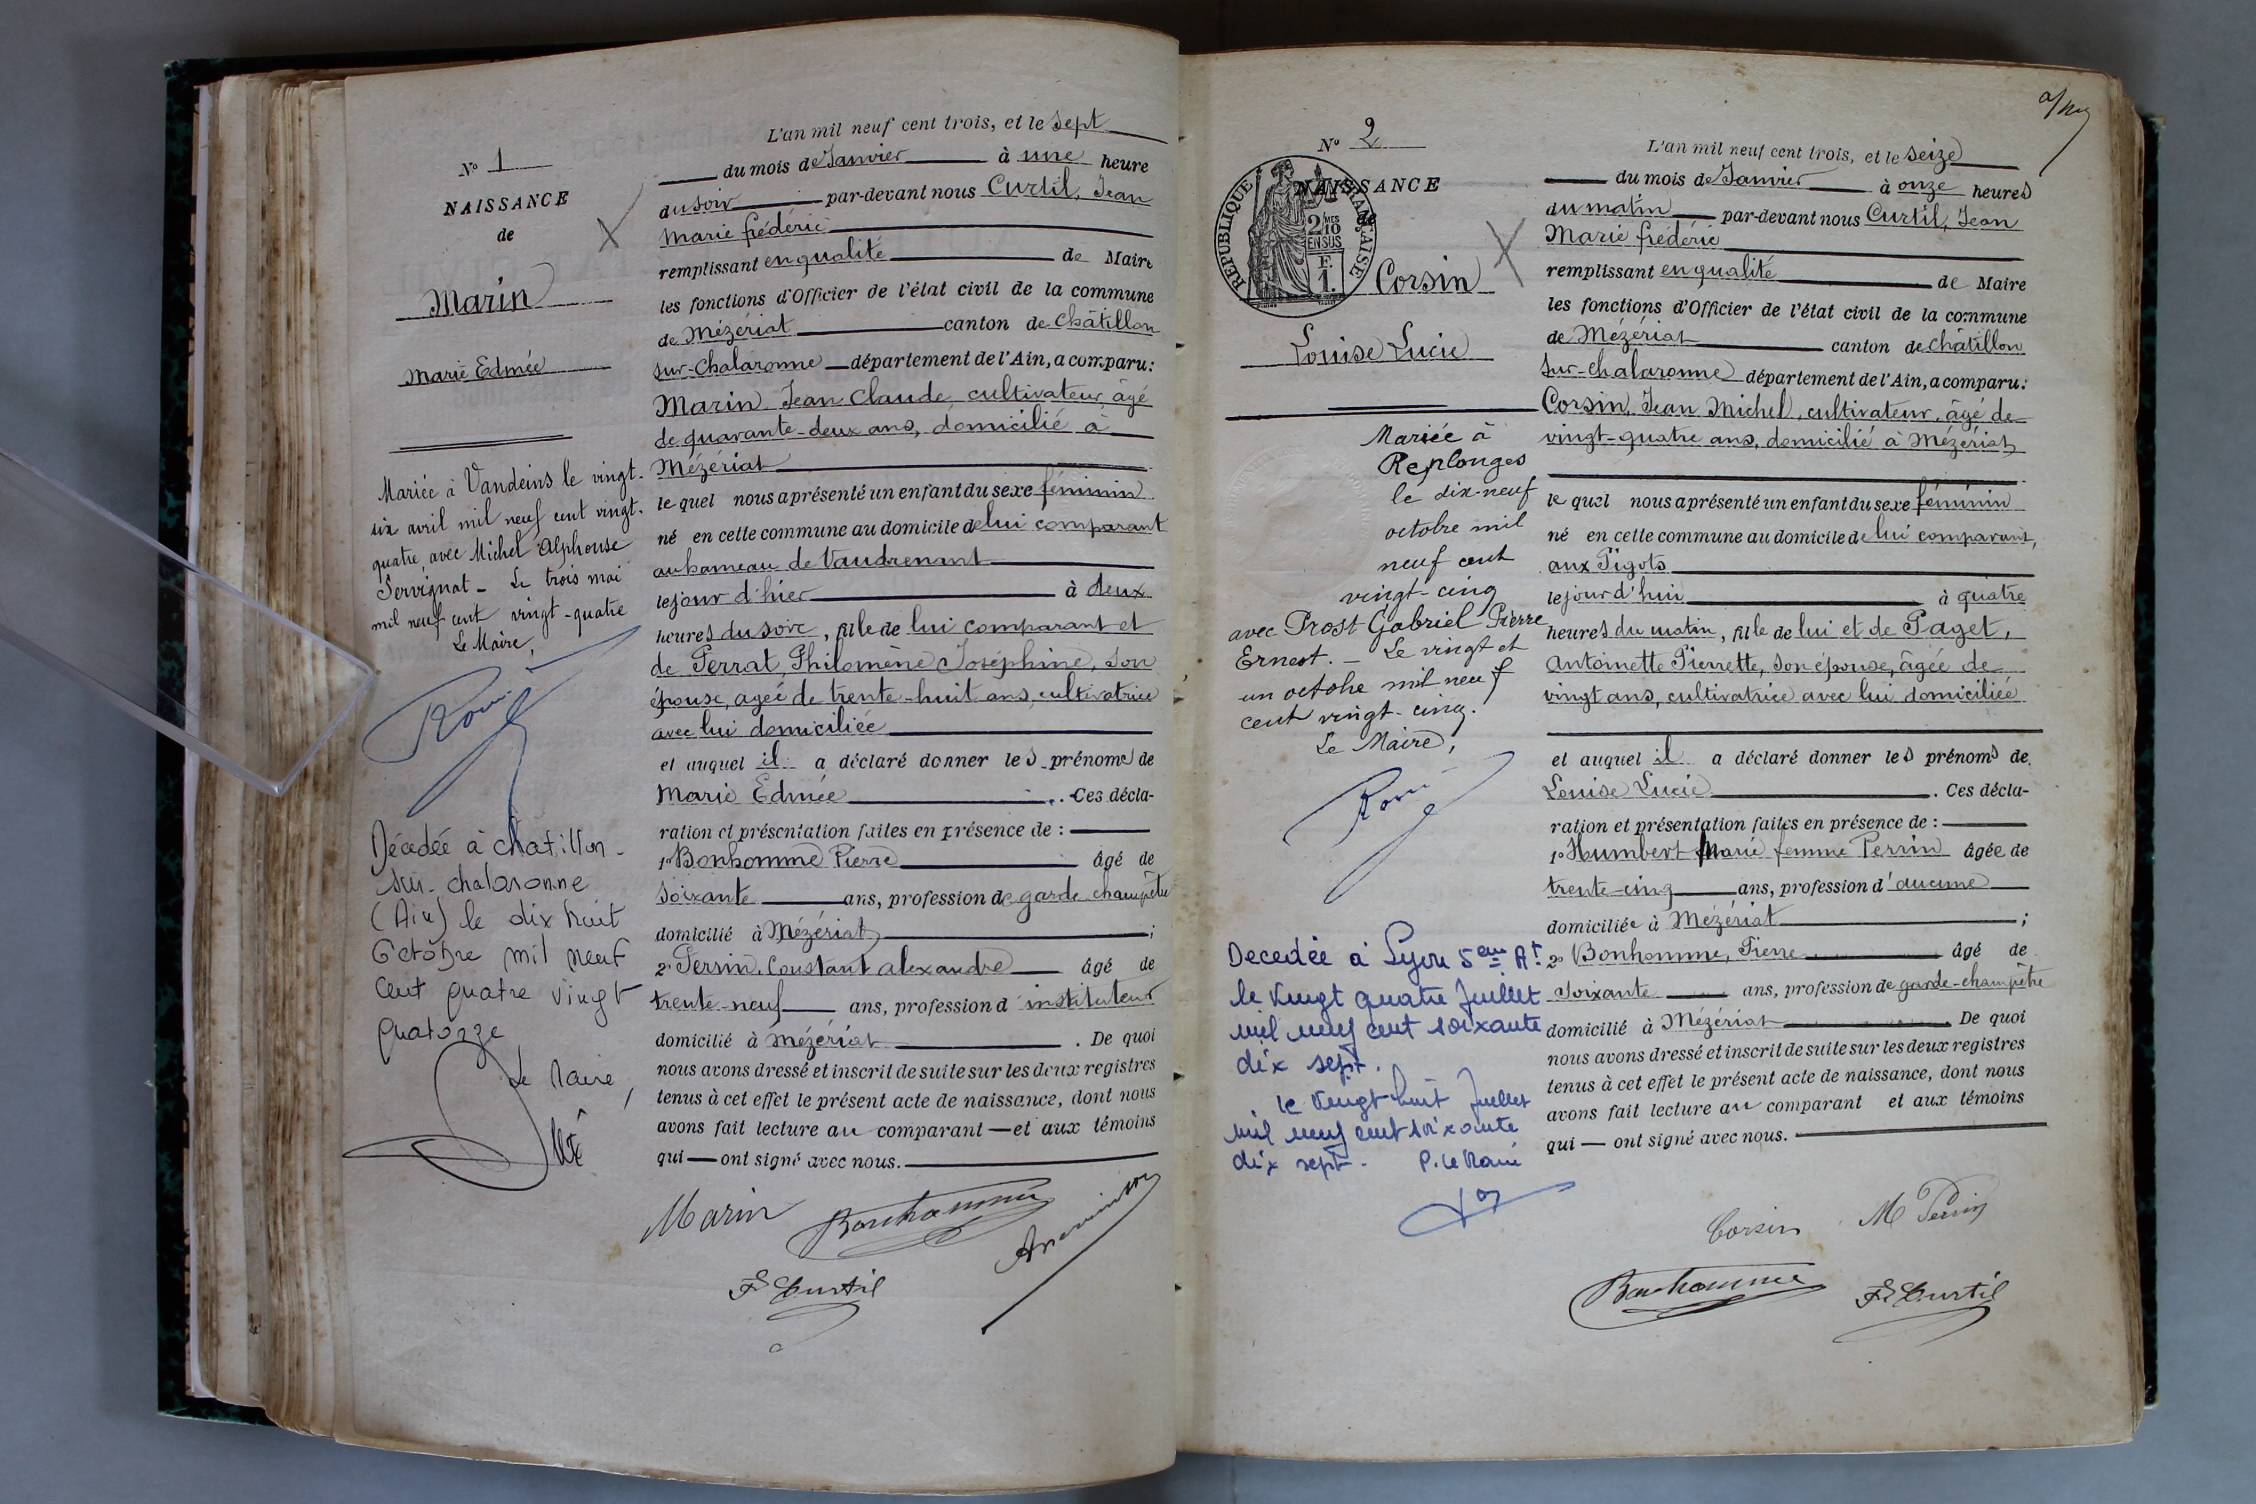 N° 1
NAISSANCE
de
Marin
Marie Edmée
Mariée à Vandeins le vingt-
six avril mil neuf cent vingt-
quatre, avec Michel Alphonse
Servignat - Le trois mai
mil neuf cent vingt-quatre
Le Maire,
Décédée à chatillon-
sur-chalaronne
(Ain) le dix huit
Octobre mil neuf
cent quatre vingt
quatorze
Le Maire,
L'an mil neuf cent trois, et le sept
du mois de Janvier à une heure
du soir par-devant nous Curtil, Jean
Marie frédéric
remplissant en qualité de Maire
les fonctions d'Officier de l'état civil de la commune
de Mézériat canton de Châtillon
sur-Chalaronne département de l'Ain, a comparu:
Marin Jean Claude, cultivateur, âgé
de quarante-deux ans, domicilié à
Mézériat
le quel nous a présenté un enfant du sexe féminin
né en cette commune au domicile de lui comparant
au hameau de Vaudrenant
le jour d'hier à deux
heures du soir, fille de lui comparant et
de Perrat, Philomène Joséphine, son
épouse, agée de trente-huit ans, cultivatrice
avec lui domiciliée
et auquel il a déclaré donner les prénoms de
Marie Edmée. Ces décla-
ration et présentation faites en présence de :
1° Bonhomme Pierre âgé de
soixante ans, profession de garde champêtre
domicilié à Mézériat;
2° Perrin, Constant alexandre âgé de
trente-neuf ans, profession d'instituteur
domicilié à Mézériat. De quoi
nous avons dressé et inscrit de suite sur les deux registres
tenus à cet effet le présent acte de naissance, dont nous
avons fait lecture au comparant et aux témoins
qui ont signé avec nous.
Marin Bonhomme
F Curtil
N° 2
NAISSANCE
de
RÉPUBLIQUE FRANÇAISE
2 MES
10
EN SUS
F.
1.
Corsin
Louise Lucie
Mariée à
Replonges
le dix-neuf
octobre mil
neuf cent
vingt-cinq
avec Prost Gabriel Pierre
Ernest. - Le vingt et
un octobre mil neuf
cent vingt-cinq.
Le Maire,
Decedée à Lyon 5eme At
le vingt quatre Juillet
mil neuf cent soixante
dix sept.
le vingt huit Juillet
mil neuf cent soixante
dix sept. P. le Maire
L'an mil neuf cent trois, et le seize
du mois de Janvier à onze heures
du matin par-devant nous Curtil, Jean
Marie frédéric
remplissant en qualité de Maire
les fonctions d'Officier de l'état civil de la commune
de Mézériat canton de châtillon
sur-chalaronne département de l'Ain, a comparu:
Corsin, Jean Michel, cultivateur, âgé de
vingt-quatre ans, domicilié à Mézériat
le quel nous a présenté un enfant du sexe féminin
né en cette commune au domicile de lui comparant,
aux Pigots
le jour d'hui à quatre
heures du matin, fille de lui et de Paget,
Antoinette Pierrette, son épouse, âgée de
vingt ans, cultivatrice avec lui domiciliée
et auquel il a déclaré donner les prénoms de
Louise Lucie. Ces décla-
ration et présentation faites en présence de :
1° Humbert Marie femme Perrin âgée de
trente-cinq ans, profession d'aucune
domiciliée à Mézériat;
2° Bonhomme, Pierre âgé de
soixante ans, profession de garde-champêtre
domicilié à Mézériat. De quoi
nous avons dressé et inscrit de suite sur les deux registres
tenus à cet effet le présent acte de naissance, dont nous
avons fait lecture au comparant et aux témoins
qui ont signé avec nous.
Corsin M Perrin
Bonhomme F Curtil